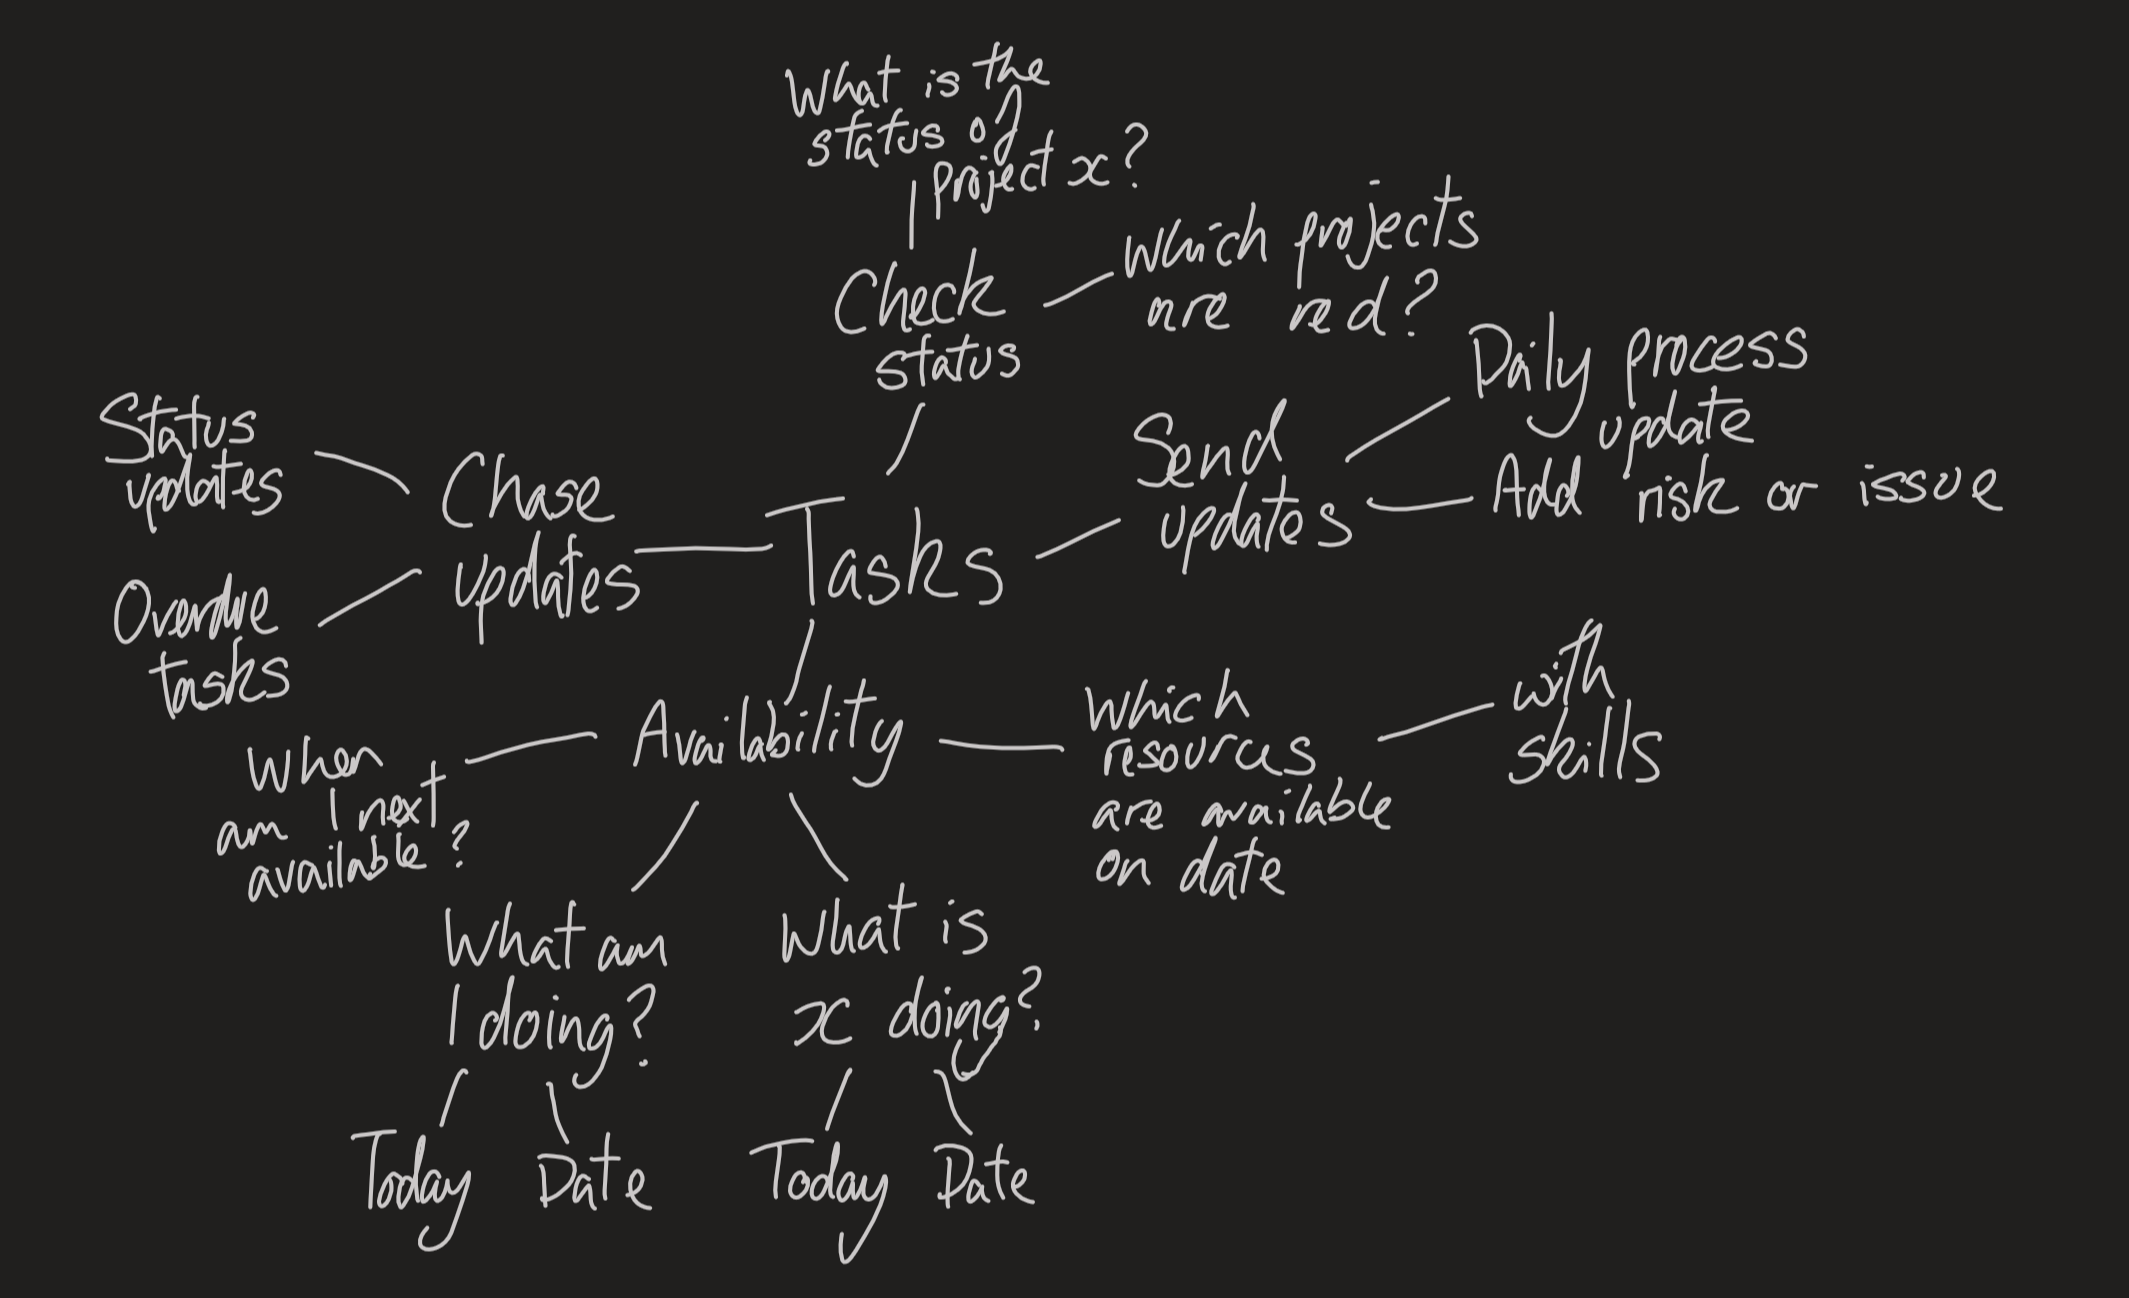 What is the
status of
project x?
Check
status
Which projects
are red?
Send
updates
Daily process
update
Add risk or issue
Status
updates
Chase
updates
Overdue
tasks
Tasks
Availability
When
am I next
available?
Which
resources
are available
on date
with
skills
What am
I doing?
Today
Date
What is
x doing?
Today
Date